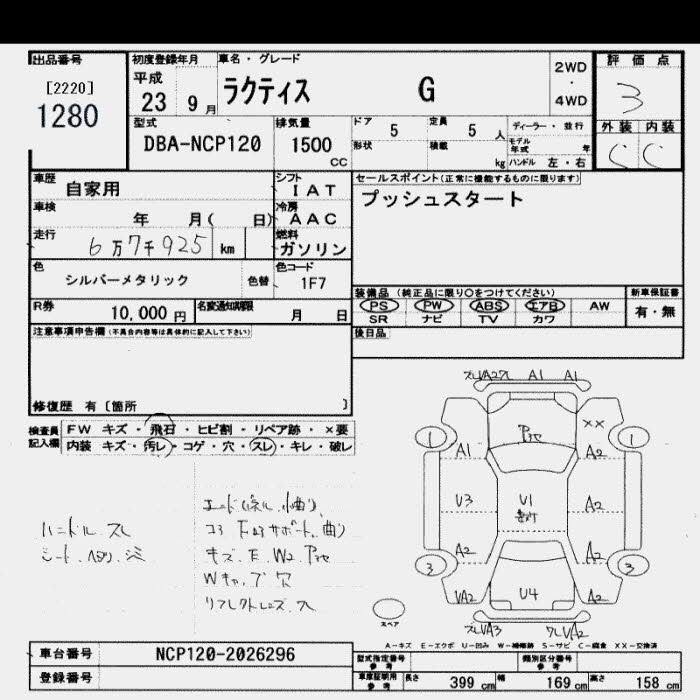 出品番号
[2220]
1280
初度登録年月
平成
23 9 月
車名・グレード
ラクティス G
2WD
・
4WD
評 価 点
3
外装 内装
C C
型式
DBA-NCP120
排気量
1500
CC
ドア 5
定員 5 人
形状
積載 kg
ディーラー・並行
モデル年式 年
ハンドル 左・右
車歴 自家用
シフト
IAT
車検 年 月( 日)
冷房
AAC
走行 6万7千925 km
燃料
ガソリン
色 シルバーメタリック 色替
色コード
1F7
R券 10,000 円
名変通知期限 月 日
セールスポイント(正常に機能するものに限ります)
プッシュスタート
装備品(純正品に限り○をつけてください)
PS PW ABS エアB AW
SR ナビ TV カワ
新車保証書
有・無
後日品
注意事項申告欄(不具合内容等は具体的に記入して下さい)
修復歴 有〔箇所 〕
検査員記入欄
FW キズ・飛石・ヒビ割・リペア跡・×要
内装 キズ・汚レ・コゲ・穴・スレ・キレ・破レ
ハンドル スレ
シート ヘタリ シミ
キズ
W2
Wキャップ 穴
リフレクトレンズ
A1 A1
1 1
A1 XX
A2
V3 U1 A2
A2
3 3
VA2 U4 A2
VA3 VA2
スペア
A-キズ E-エクボ U-凹み W-補修跡 S-サビ C-腐食 XX-交換済
車台番号 NCP120-2026296
登録番号
型式指定番号
参考
類別区分番号
参考
車庫証明用
参考
長さ 399 cm 幅 169 cm 高さ 158 cm